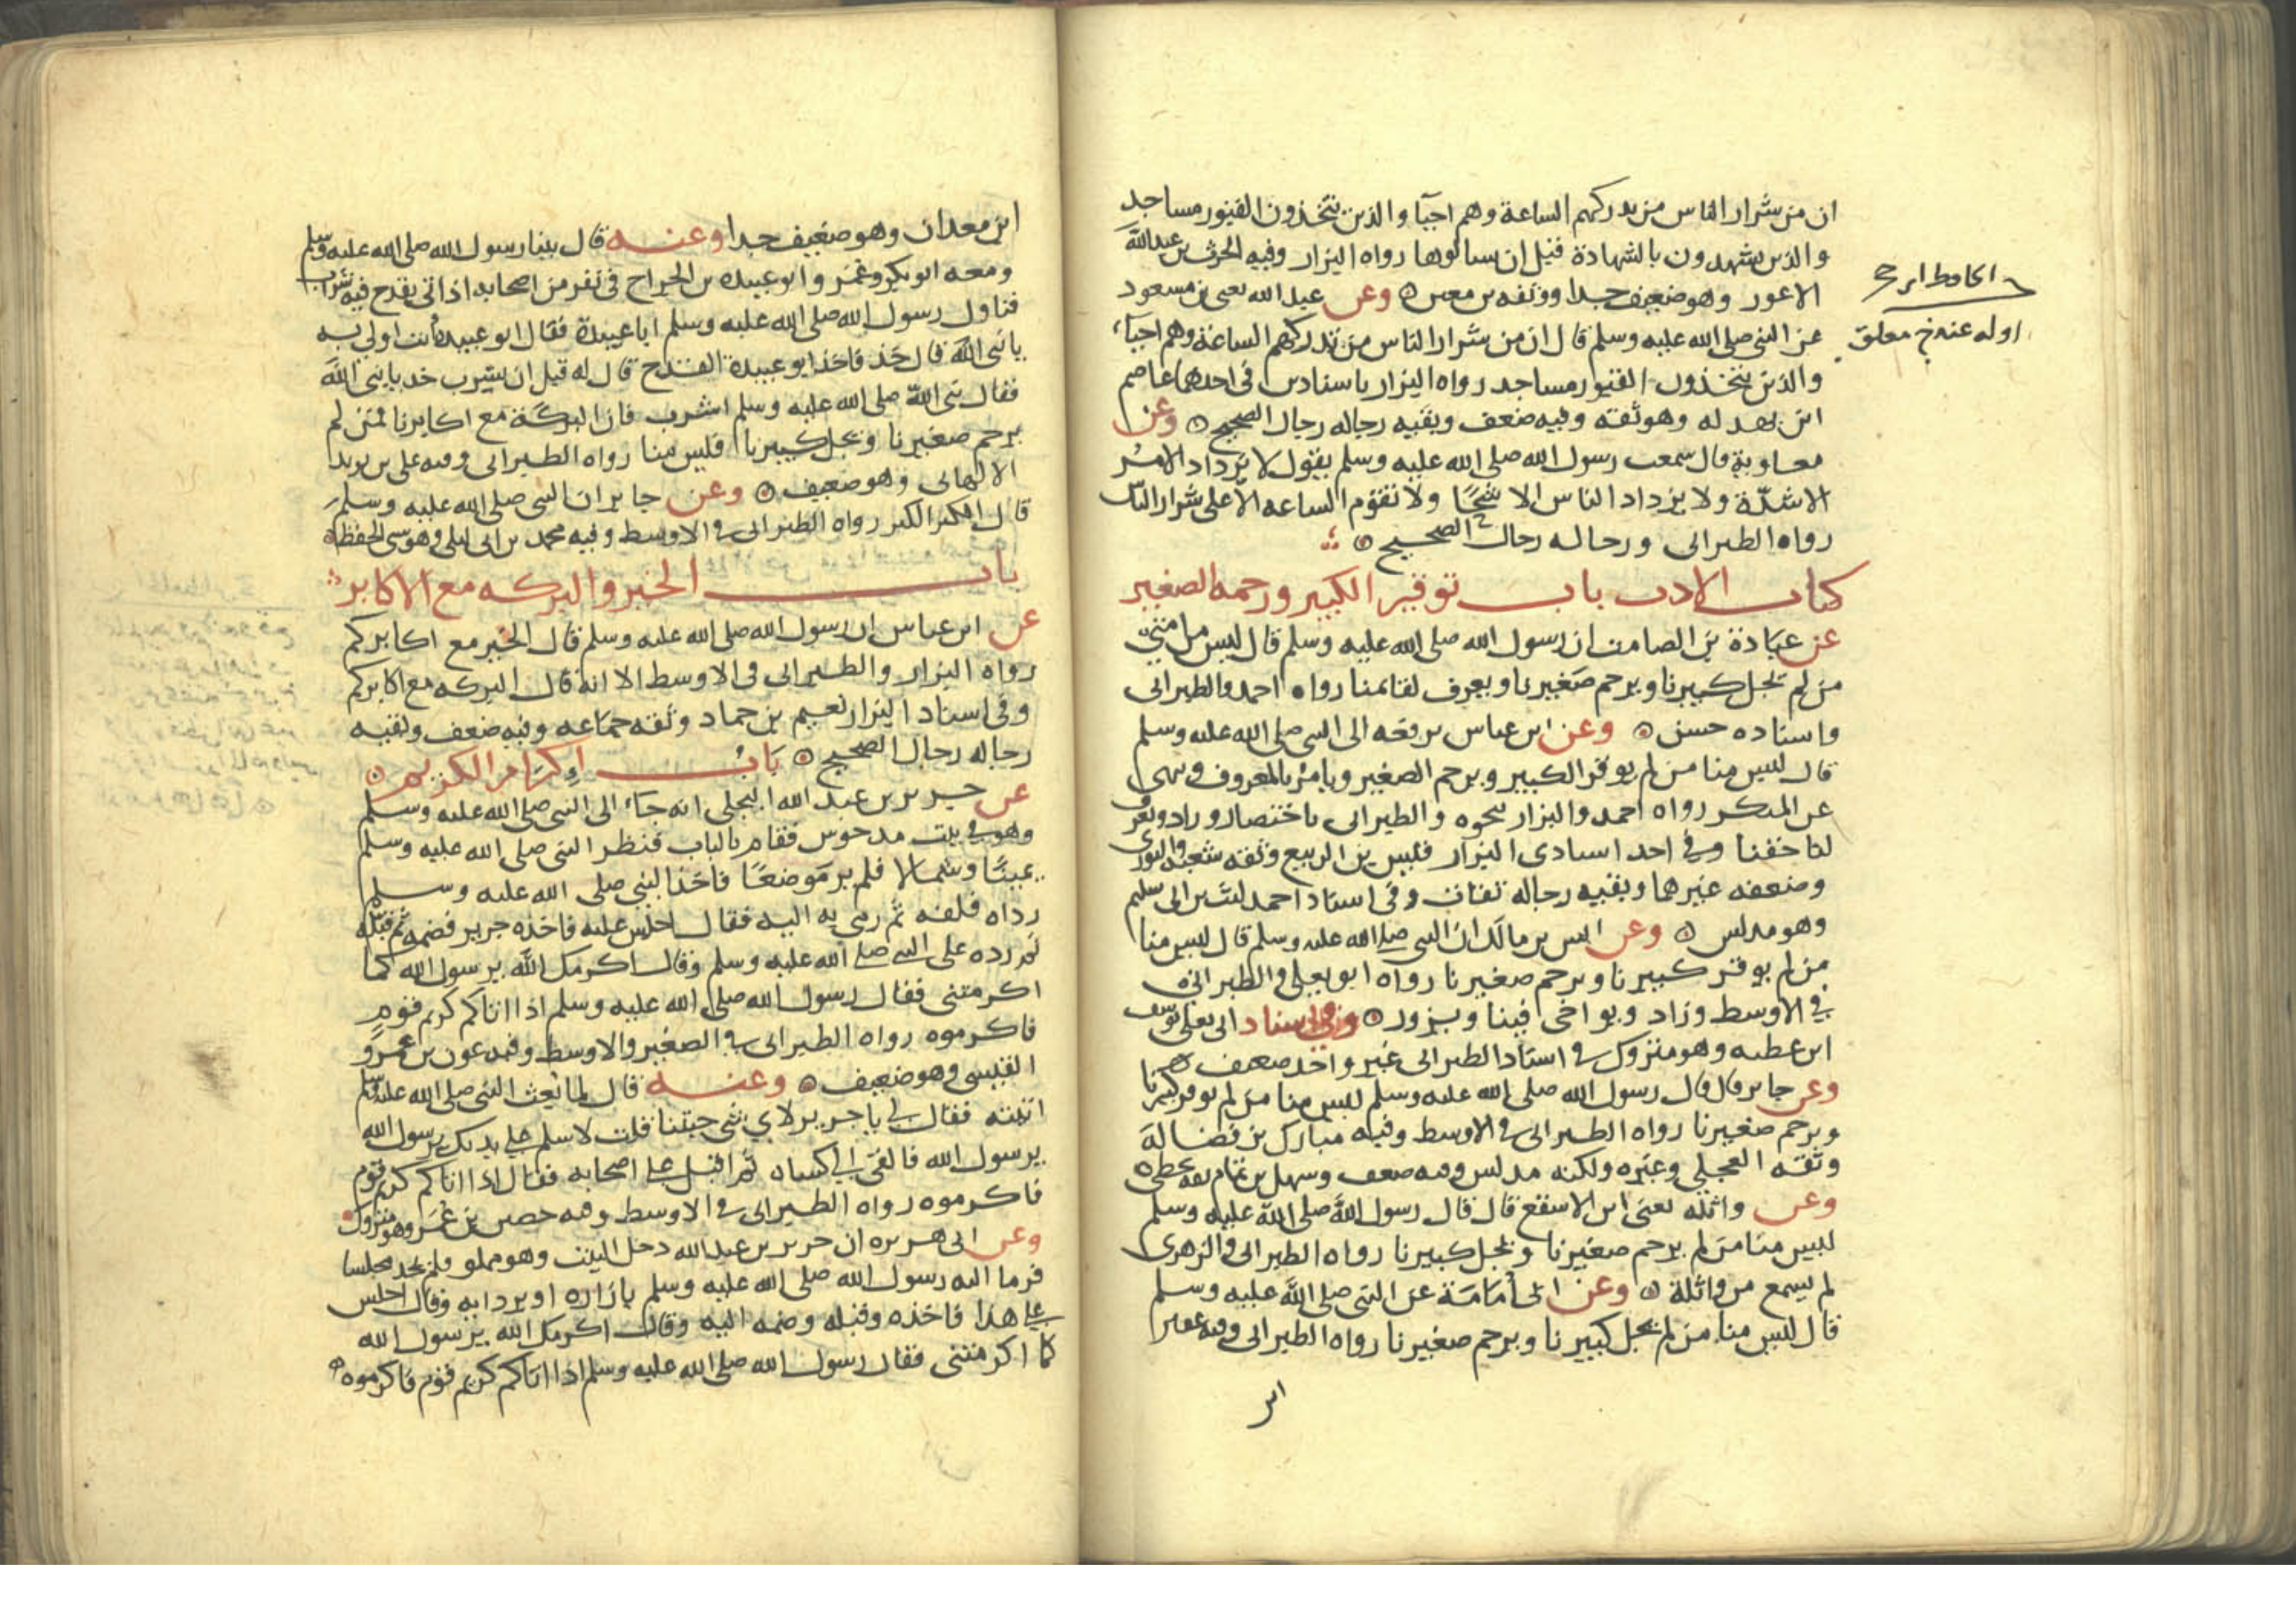 ان من شرار الناس من يدركهم الساعة وهم احيآ والذين يتخذون القبور مساجد
والذين يشهدون بالشهادة قبل ان يسالوها رواه البزار وفيه الحرث بن عبدالله
الاعور وهو ضعيف جدا ووثقه بن معين وعن عبد الله يعنى بن مسعود
عن النبى صلى الله عليه وسلم قال ان من شرار الناس من تدركهم الساعة وهم احيآء
والذين يتخذون القبور مساجد رواه البزار باسنادين فى احدهما عاصم
ابن بهدله وهو ثقه وفيه ضعف وبقيه رجاله رجال الصحيح وعن
معاوية قال سمعت رسول الله صلى الله عليه وسلم يقول لا يزداد الامر
الا شدّة ولا يزداد الناس الا شحًّا ولا تقوم الساعه الا على شرار الناس
رواه الطبرانى ورجاله رجال الصحيح
كتاب الادب باب توقير الكبير ورحمه الصغير
عن عبادة بن الصامت ان رسول الله صلى الله عليه وسلم قال ليس من امتى
من لم يجل كبيرنا ويرحم صغيرنا ويعرف لعالمنا رواه احمد والطبرانى
واسناده حسن وعن ابن عباس يرفعه الى النبى صلى الله عليه وسلم
قال ليس منا من لم يوقر الكبير ويرحم الصغير ويامر بالمعروف وينهى
عن المنكر رواه احمد والبزار بنحوه والطبرانى باختصار وزاد ويعرف
لنا حقنا وفى احد اسنادى البزار قيس بن الربيع وثقه شعبه والثورى
وضعفه غيرهما وبقيه رجاله ثقات وفى اسناد احمد ليث بن ابى سليم
وهو مدلس وعن انس بن مالك ان النبى صلى الله عليه وسلم قال ليس منا
من لم يوقر كبيرنا ويرحم صغيرنا رواه ابو يعلى والطبرانى
فى الاوسط وزاد ويواخى فينا ويزور وفى اسناد ابى يعلى يوسف
ابن عطيه وهو متروك وفى اسناد الطبرانى غير واحد ضعيف
وعن جابر قال قال رسول الله صلى الله عليه وسلم ليس منا من لم يوقر كبيرنا
ويرحم صغيرنا رواه الطبرانى فى الاوسط وفيه مبارك بن فضالة
وثقه العجلى وغيره ولكنه مدلس وفيه ضعف وسهل بن تمام ثقه يخطى
وعن واثله يعنى ابن الاسقع قال قال رسول الله صلى الله عليه وسلم
ليس منا من لم يرحم صغيرنا ويجل كبيرنا رواه الطبرانى والزهرى
لم يسمع من واثلة وعن ابى أمامة عن النبى صلى الله عليه وسلم
قال ليس منا من لم يجل كبيرنا ويرحم صغيرنا رواه الطبرانى وفيه عفير
ابن
اوله عنه معلق
ابن معدان وهو ضعيف جدا وعنه قال بينا رسول الله صلى الله عليه وسلم
ومعه ابو بكر وعمر وابو عبيدة بن الجراح فى نفر من اصحابه اذ اتى بقدح فيه شراب
فناول رسول الله صلى الله عليه وسلم ابا عبيدة فقال ابو عبيدة انت اولى به
يا نبى الله قال خذ فاخذ ابو عبيدة القدح قال له قبل ان يشرب خد يا نبى الله
فقال نبى الله صلى الله عليه وسلم اشرب فان البركة مع اكابرنا فمن لم
يرحم صغيرنا ويجل كبيرنا فليس منا رواه الطبرانى وفيه على بن يزيد
الالهانى وهو ضعيف وعن جابر ان النبى صلى الله عليه وسلم
قال الكبر الكبر رواه الطبرانى فى الاوسط وفيه محمد بن ابى ليلى وهو سىء الحفظ
باب الخير والبركه مع الاكابر
عن ابن عباس ان رسول الله صلى الله عليه وسلم قال الخير مع اكابركم
رواه البزار والطبرانى فى الاوسط الا انه قال البركه مع اكابركم
وفى اسناد البزار نعيم بن حماد وثقه جماعه وفيه ضعف وبقيه
رجاله رجال الصحيح باب اكرام الكريم
عن جرير بن عبد الله البجلى انه جآء الى النبى صلى الله عليه وسلم
وهو فى بيت مدحوس فقام بالباب فنظر النبى صلى الله عليه وسلم
يمينًا وشمالا فلم ير موضعًا فاخذ النبى صلى الله عليه وسلم
رداه فلفه ثم رمى به اليه فقال اجلس عليه فاخذه جرير فضمه ثم قبّله
ثم رده على النبى صلى الله عليه وسلم وقال اكرمك الله يرسول الله كما
اكرمتنى فقال رسول الله صلى الله عليه وسلم اذا اتاكم كريم قوم
فاكرموه رواه الطبرانى فى الصغير والاوسط وفيه عون بن عمرو
القيسى وهو ضعيف وعنه قال لما بعث النبى صلى الله عليه وسلم
اتيته فقال لى يا جرير لاي شى جيتنا قلت لاسلم على يديك يرسول الله
يرسول الله فالقى الى كساه ثم اقبل على اصحابه فقال اذا اتاكم كريم قوم
فاكرموه رواه الطبرانى فى الاوسط وفيه حصين بن عمر وهو متروك
وعن ابى هريره ان جرير بن عبد الله دخل البيت وهو مملو ولم يجد مجلسا
فرما اليه رسول الله صلى الله عليه وسلم بازاره او بردايه وقال اجلس
على هذا فاخذه وقبله وضمه اليه وقال اكرمك الله يرسول الله
كما اكرمتنى فقال رسول الله صلى الله عليه وسلم اذا اتاكم كريم قوم فاكرموه